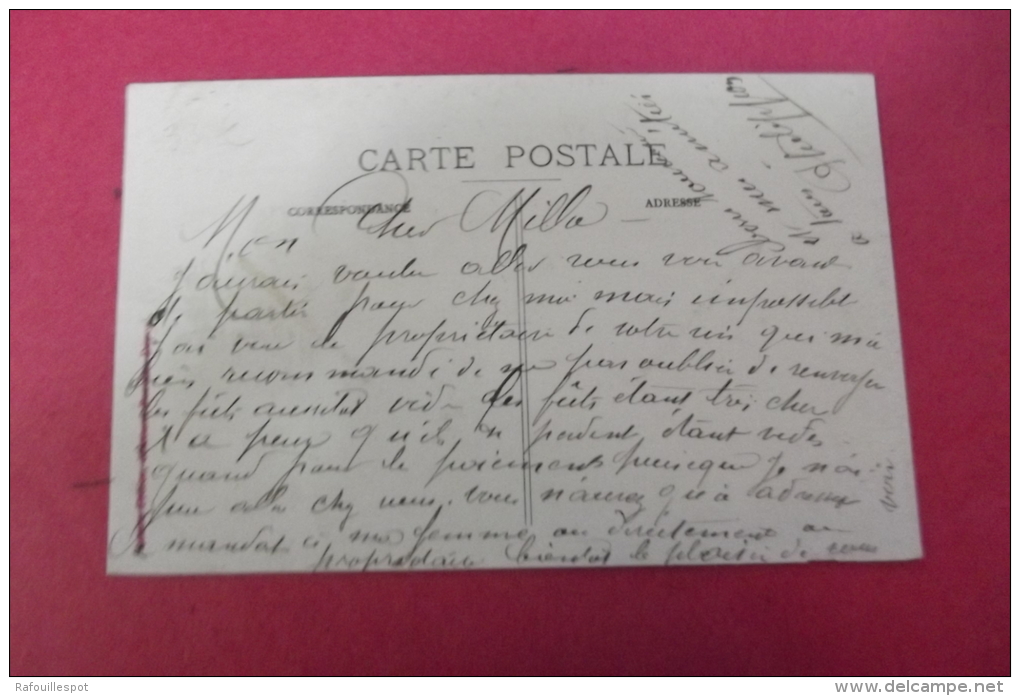 CARTE POSTALE
CORRESPONDANCE
ADRESSE
Mon Cher Milla
J'aurais voulu aller vous voir avant
de partir pour chez moi mais impossible
J'ai vu le propriétaire de votre vin qui m'a
bien recommandé de ne pas oublier de renvoyer
les fûts aussitot vide les fûts étant très cher
il a peur qu'ils n perdent étant vides
quand pour le paiements puisque je n'ai
pu aller chez vous. vous n'aurez qu'à adresser
le mandat à ma femme ou directement au
propriétaire bientot le plaisir de vous
voir
et mes amitiés
à tous
Rafouillespot
www.delcampe.net